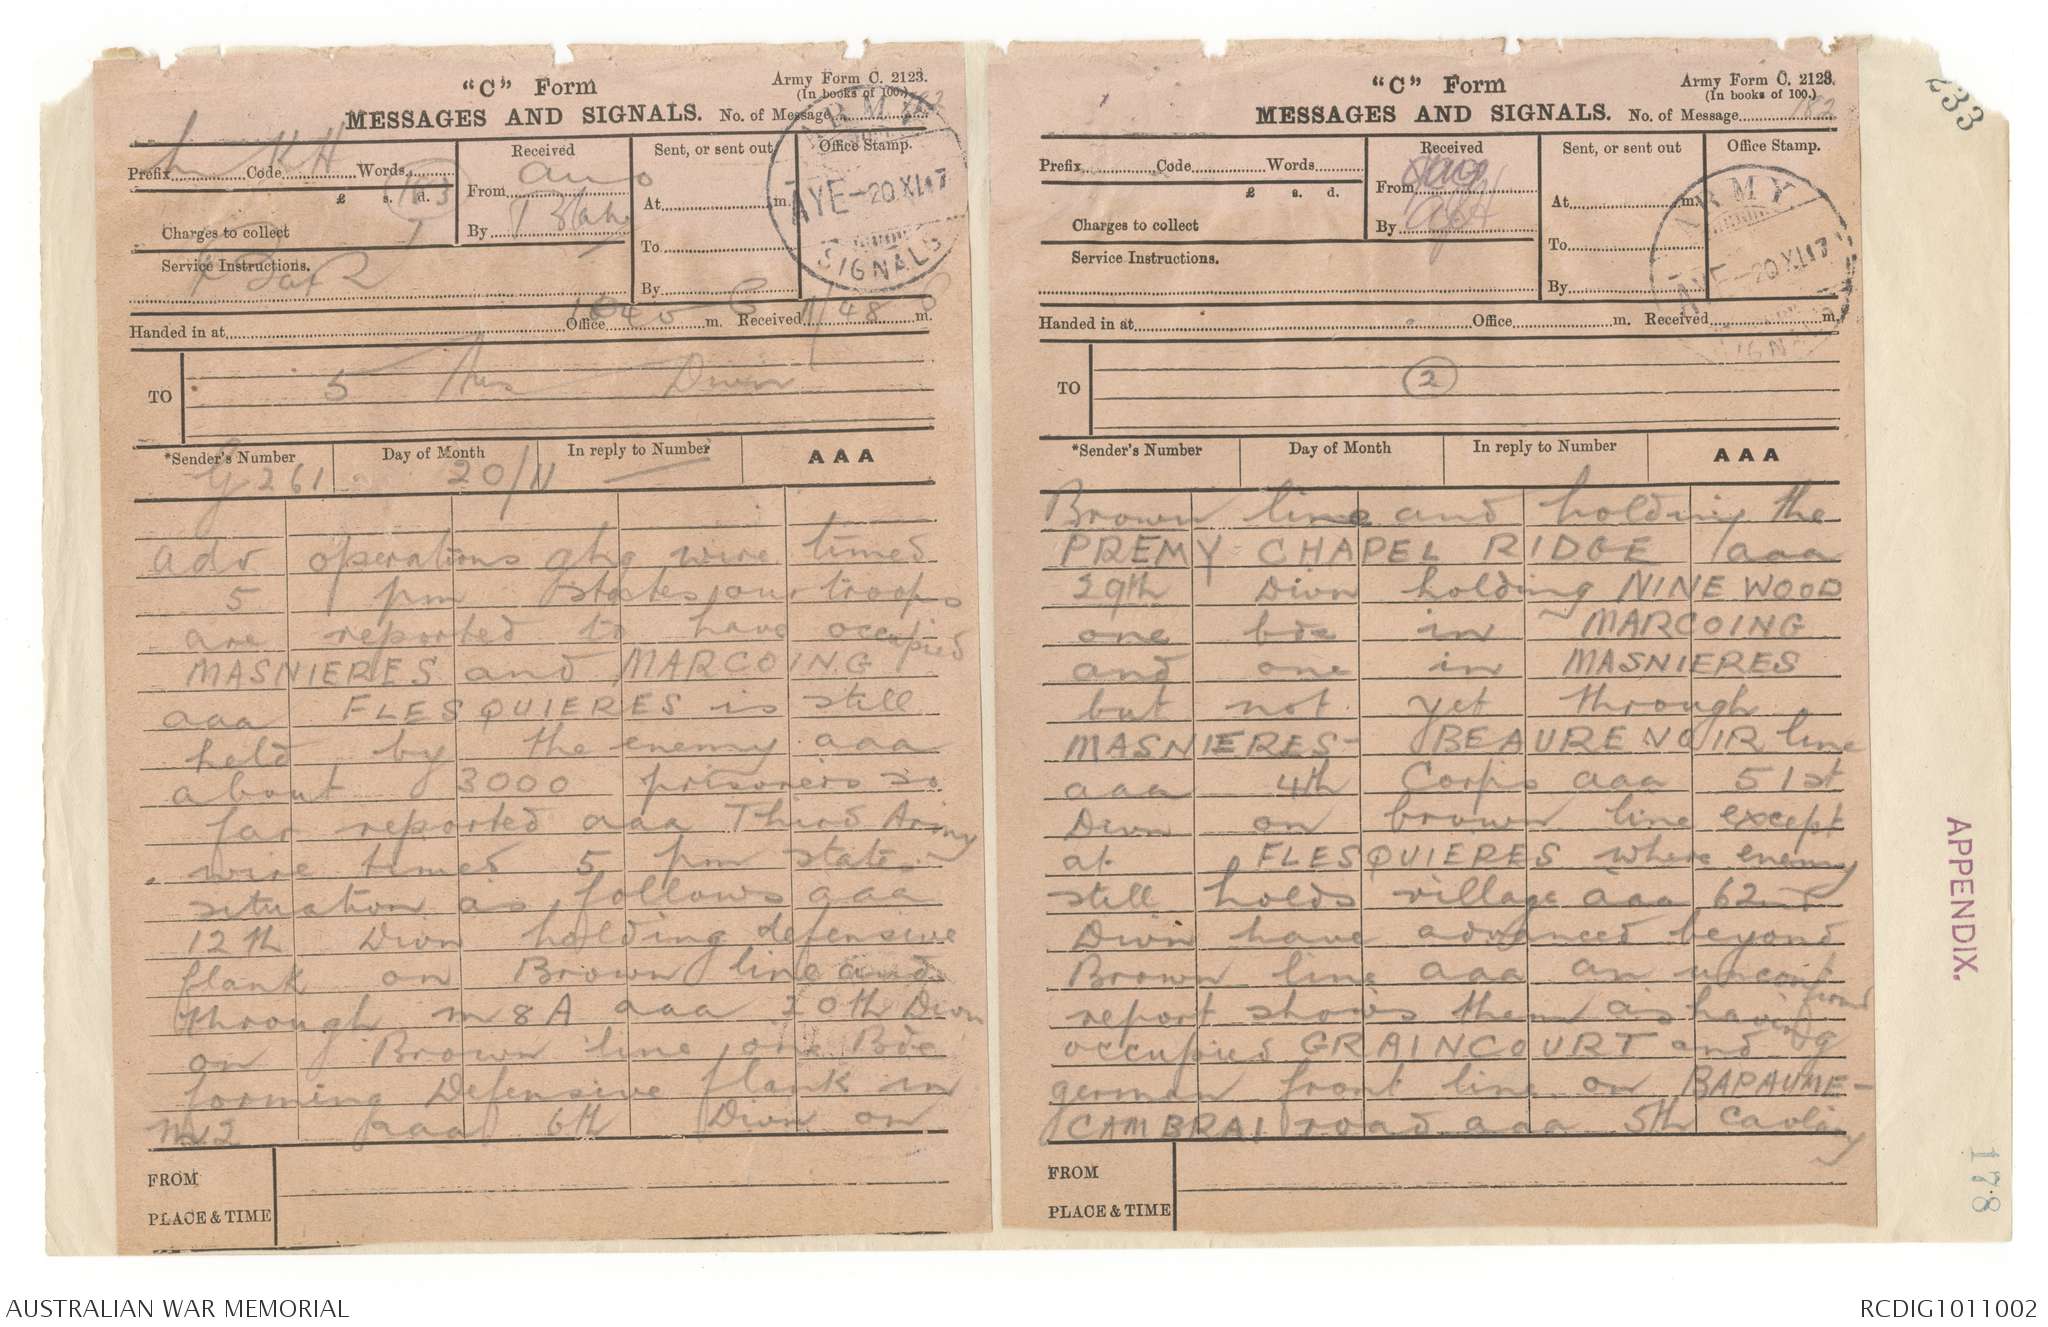 "C" Form
Army Form C. 2123.
(In books of 100.)
MESSAGES AND SIGNALS. No. of Message 182
Prefix Code KH Words 163
£ s. d.
Charges to collect
Service Instructions.
Received
From
By
Sent, or sent out
At m.
To
By
Office Stamp.
ARMY
AYE-20.XI.17
SIGNALS
Handed in at Office 1040 m. Received 11/48 m.
TO 5 Aus Divn
*Sender's Number G 261
Day of Month 20/11
In reply to Number —
AAA
adv operations ghq wire timed
5 pm states our troops
are reported to have occupied
MASNIERES and MARCOING
aaa FLESQUIERES is still
held by the enemy aaa
about 3000 prisoners so
far reported aaa Third Army
wire timed 5 pm states
situation as follows aaa
12th Divn holding defensive
flank on Brown line and
through m 8 A aaa 20th Divn
on Brown line one Bde
forming Defensive flank in
M12 aaa 6th Divn on
FROM
PLACE & TIME
"C" Form
Army Form C. 2123.
(In books of 100.)
MESSAGES AND SIGNALS. No. of Message 182
Prefix Code Words
£ s. d.
Charges to collect
Service Instructions.
Received
From
By
Sent, or sent out
At m.
To
By
Office Stamp.
ARMY
AYE-20.XI.17
SIGNALS
Handed in at Office m. Received m.
TO 2
*Sender's Number
Day of Month
In reply to Number
AAA
Brown line and holding the
PREMY CHAPEL RIDGE aaa
29th Divn holding NINE WOOD
one bde in MARCOING
and one in MASNIERES
but not yet through
MASNIERES- BEAURENOIR line
aaa 4th Corps aaa 51st
Divn on brown line except
at FLESQUIERES where enemy
still holds village aaa 62nd
Divn have advanced beyond
Brown line aaa an unconfirmed
report shows them as having
occupied GRAINCOURT and
german front line on BAPAUME-
CAMBRAI road aaa 5th Cavlary
FROM
PLACE & TIME
233
APPENDIX.
178
AUSTRALIAN WAR MEMORIAL
RCDIG1011002